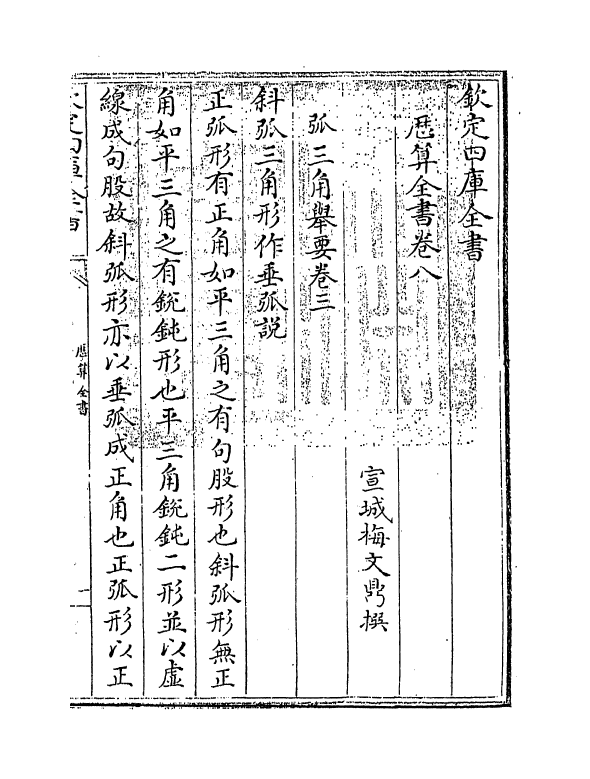 欽定四庫全書
厯算全書卷八
宣城梅文鼎撰
弧三角舉要卷三
斜弧三角形作垂弧説
正弧形有正角如平三角之有句股形也斜弧形無正
角如平三角之有鋭鈍形也平三角鋭鈍二形並以虛
線成句股故斜弧形亦以垂弧成正角也正弧形以正
欽定四庫全書
厯算全書
一